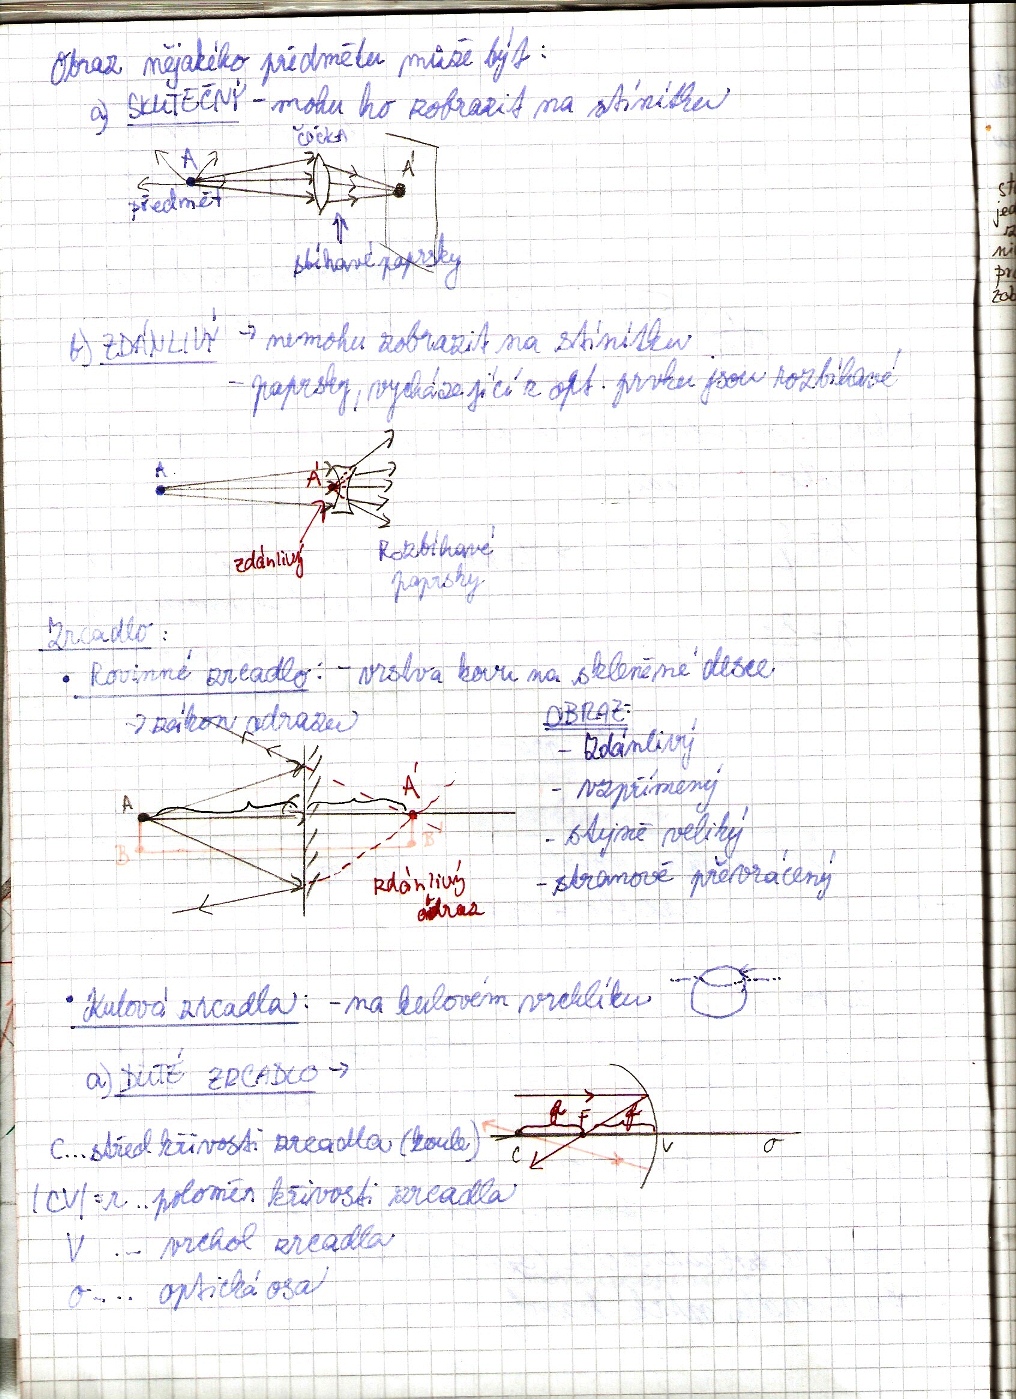 Obraz nějakého předmětu může být:
a) SKUTEČNÝ - mohu ho zobrazit na stínítku
čočka
A
A'
předmět
sbíhavé paprsky
b) ZDÁNLIVÝ → nemohu zobrazit na stínítku
- paprsky, vycházející z opt. prvku jsou rozbíhavé
A
A'
zdánlivý
Rozbíhavé
paprsky
Zrcadlo:
• Rovinné zrcadlo: - vrstva kovu na skleněné desce
→ zákon odrazu
OBRAZ:
- Zdánlivý
- vzpřímený
- stejně veliký
- stranově převrácený
A
A'
B
B'
zdánlivý
odraz
• Kulová zrcadla: - na kulovém vrchlíku
a) DUTÉ ZRCADLO →
f F f
C V o
C... střed křivosti zrcadla (koule)
|CV| = r .. poloměr křivosti zrcadla
V ... vrchol zrcadla
o .... optická osa